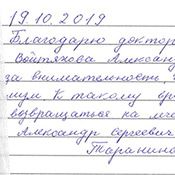 19.10.2019
Благодарю доктор
Войтяхова Александ
за внимательность,
мизм. К такому вр
возвращаться на ле
Александр Сергеевич
Таранино